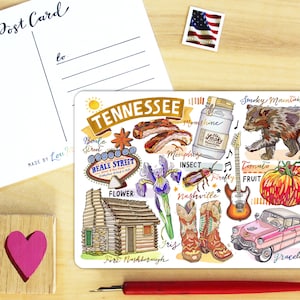 Post Card
to
MADE BY Lori
TENNESSEE
Moonshine
Smoky Mountains
Beale
Street
BEALE STREET
Memphis
INSECT
Firefly
Tomato
FRUIT
FLOWER
Nashville
Iris
Fort Nashborough
Graceland